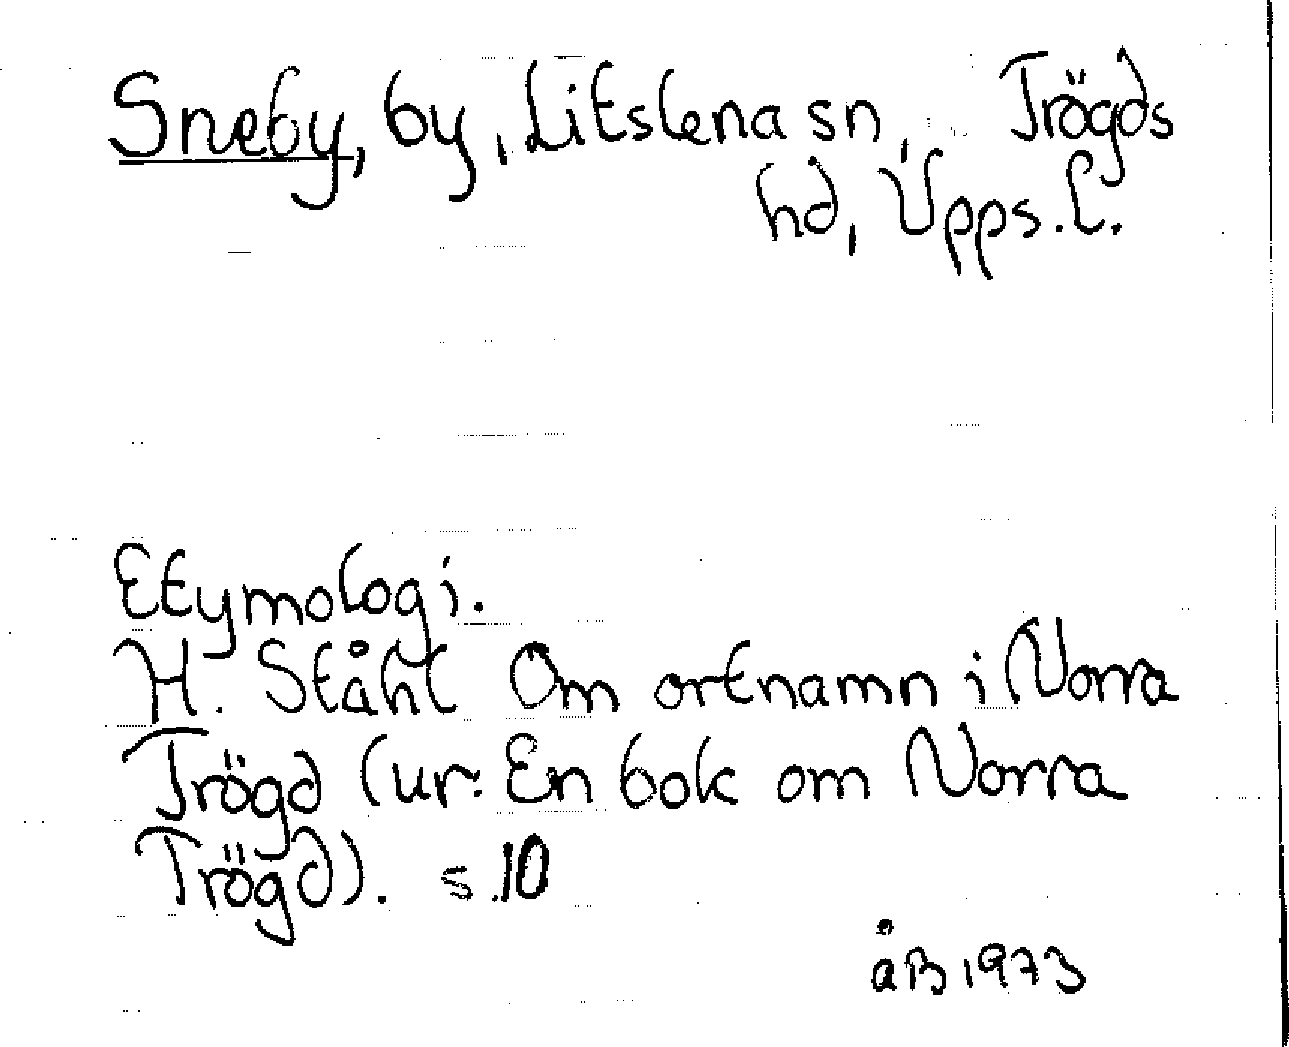 Sneby, by, Litslena sn, Trögds
hd, Upps. l.
Etymologi.
H. Ståhl Om ortnamn i Norra
Trögd (ur: En bok om Norra
Trögd). s.10
åB 1973